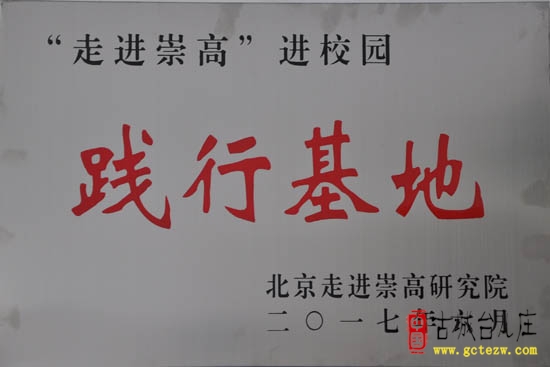 “走进崇高”进校园
践行基地
北京走进崇高研究院
二〇一七年六月
中國古城台儿庄
www.gctezw.com